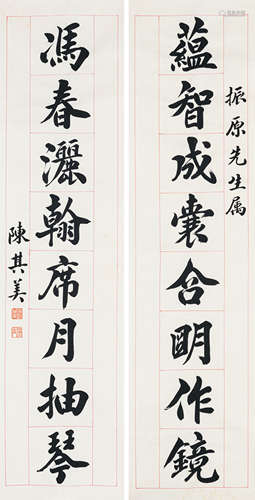 振原先生属
蕴智成囊合明作鏡
馮春灑翰席月抽琴
陳其美